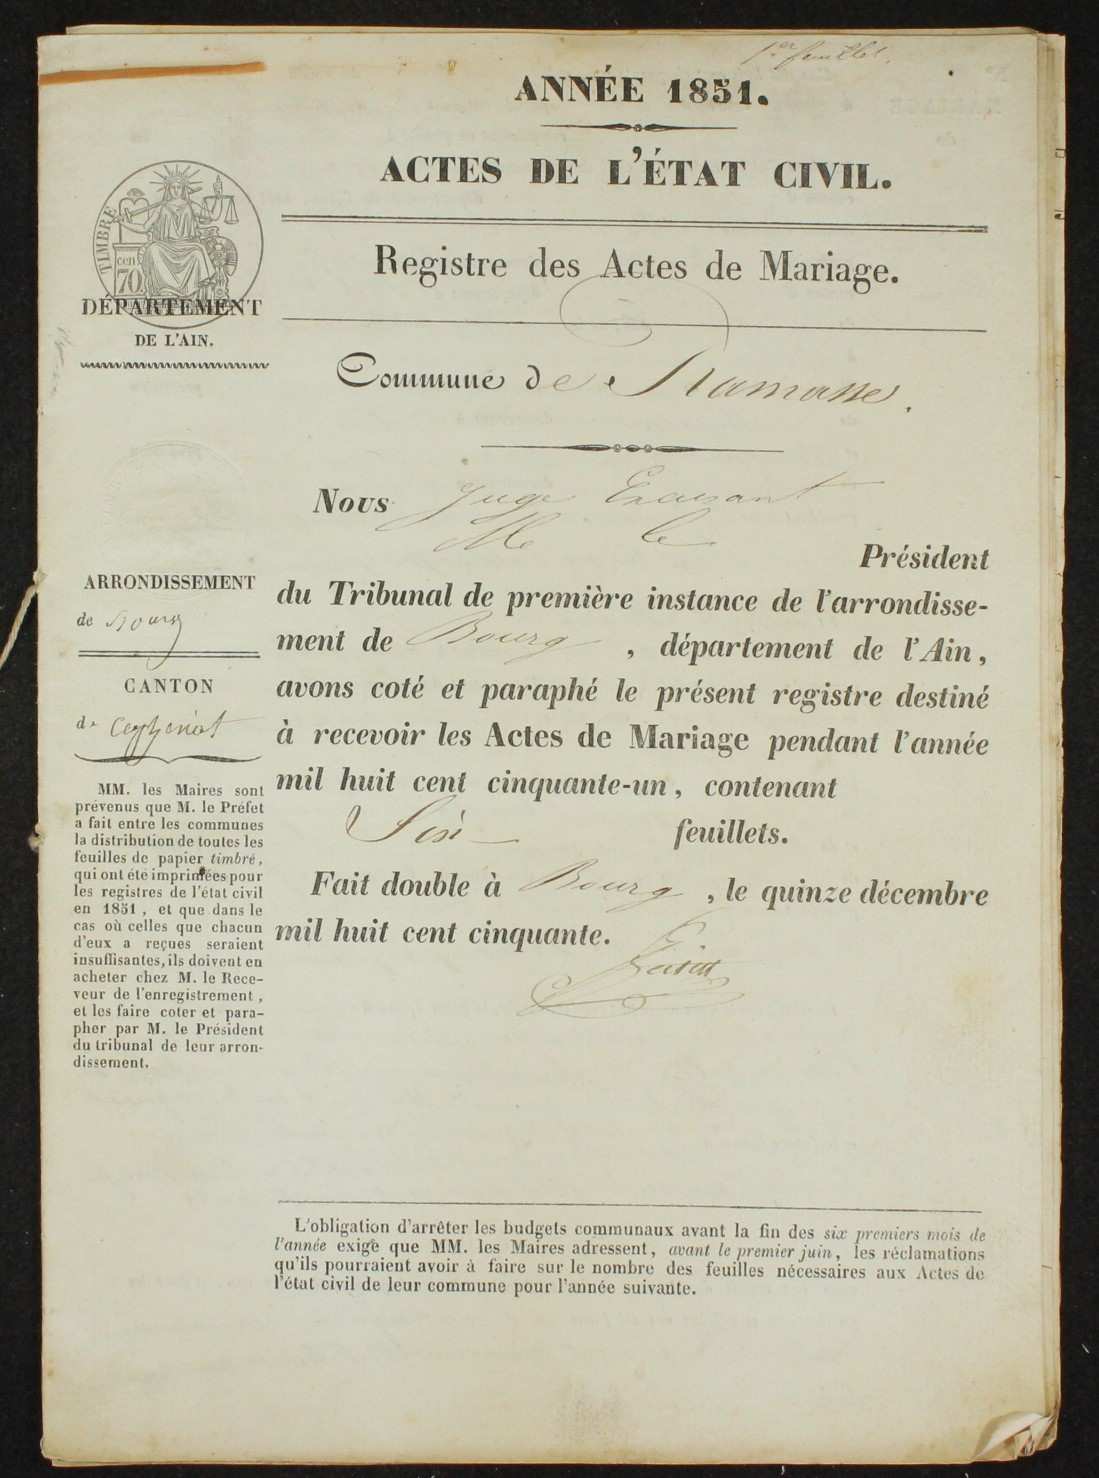 1er feuillet.
ANNÉE 1851.
ACTES DE L'ÉTAT CIVIL.
TIMBRE
cen
70.
DÉPARTEMENT
DE L'AIN.
Registre des Actes de Mariage.
Commune de Ramasse.
Nous Juge
Mr le
Président
du Tribunal de première instance de l'arrondisse-
ment de Bourg, département de l'Ain,
avons coté et paraphé le présent registre destiné
à recevoir les Actes de Mariage pendant l'année
mil huit cent cinquante-un, contenant
Six feuillets.
Fait double à Bourg, le quinze décembre
mil huit cent cinquante.
ARRONDISSEMENT
de Bourg
CANTON
de Ceyzeriat
MM. les Maires sont
prévenus que M. le Préfet
a fait entre les communes
la distribution de toutes les
feuilles de papier timbré,
qui ont été imprimées pour
les registres de l'état civil
en 1851, et que dans le
cas où celles que chacun
d'eux a reçues seraient
insuffisantes, ils doivent en
acheter chez M. le Rece-
veur de l'enregistrement,
et les faire coter et para-
pher par M. le Président
du tribunal de leur arron-
dissement.
L'obligation d'arrêter les budgets communaux avant la fin des six premiers mois de
l'année exige que MM. les Maires adressent, avant le premier juin, les réclamations
qu'ils pourraient avoir à faire sur le nombre des feuilles nécessaires aux Actes de
l'état civil de leur commune pour l'année suivante.